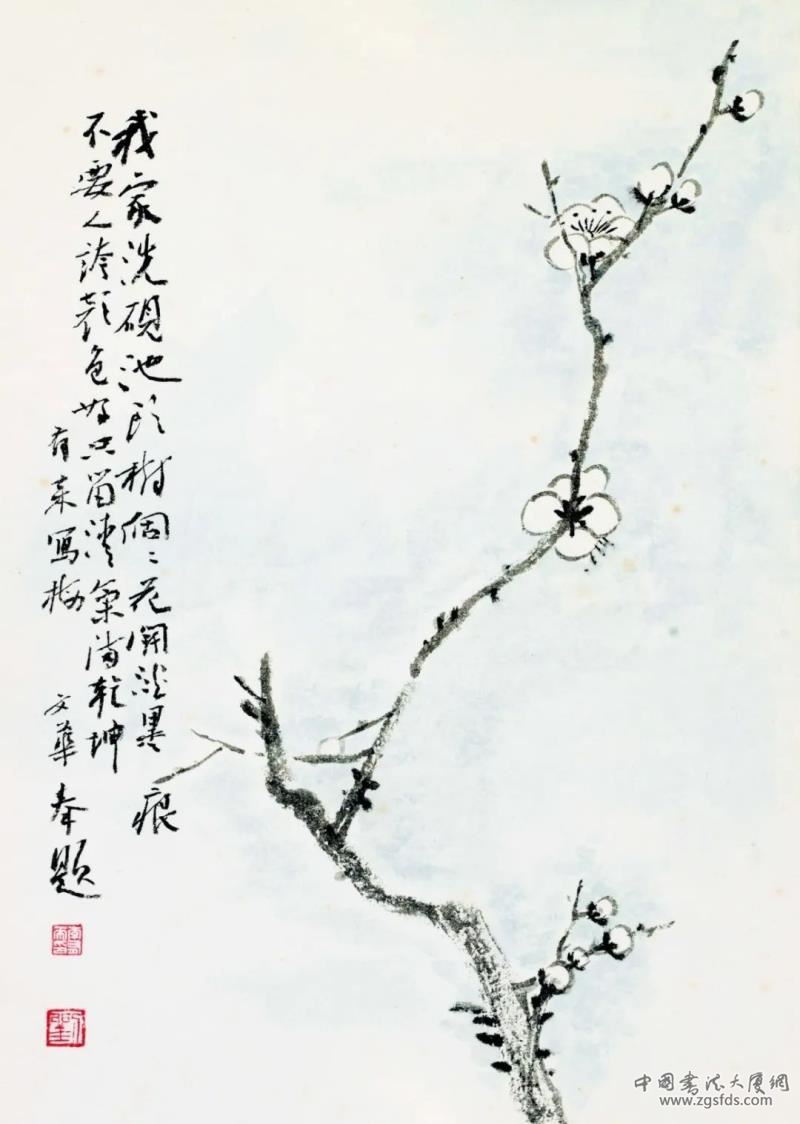 我家洗硯池頭樹個〻花開淡墨痕
不要人誇顏色好只留清氣滿乾坤
有來寫梅 文華奉題
中國書法大厦網
www.zgsfds.com